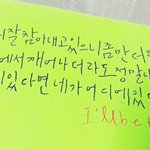 잘 참아내고있으니 좀만 더
에서 깨어나더라도 정말
있다면 네가 어디에 있
I'll be